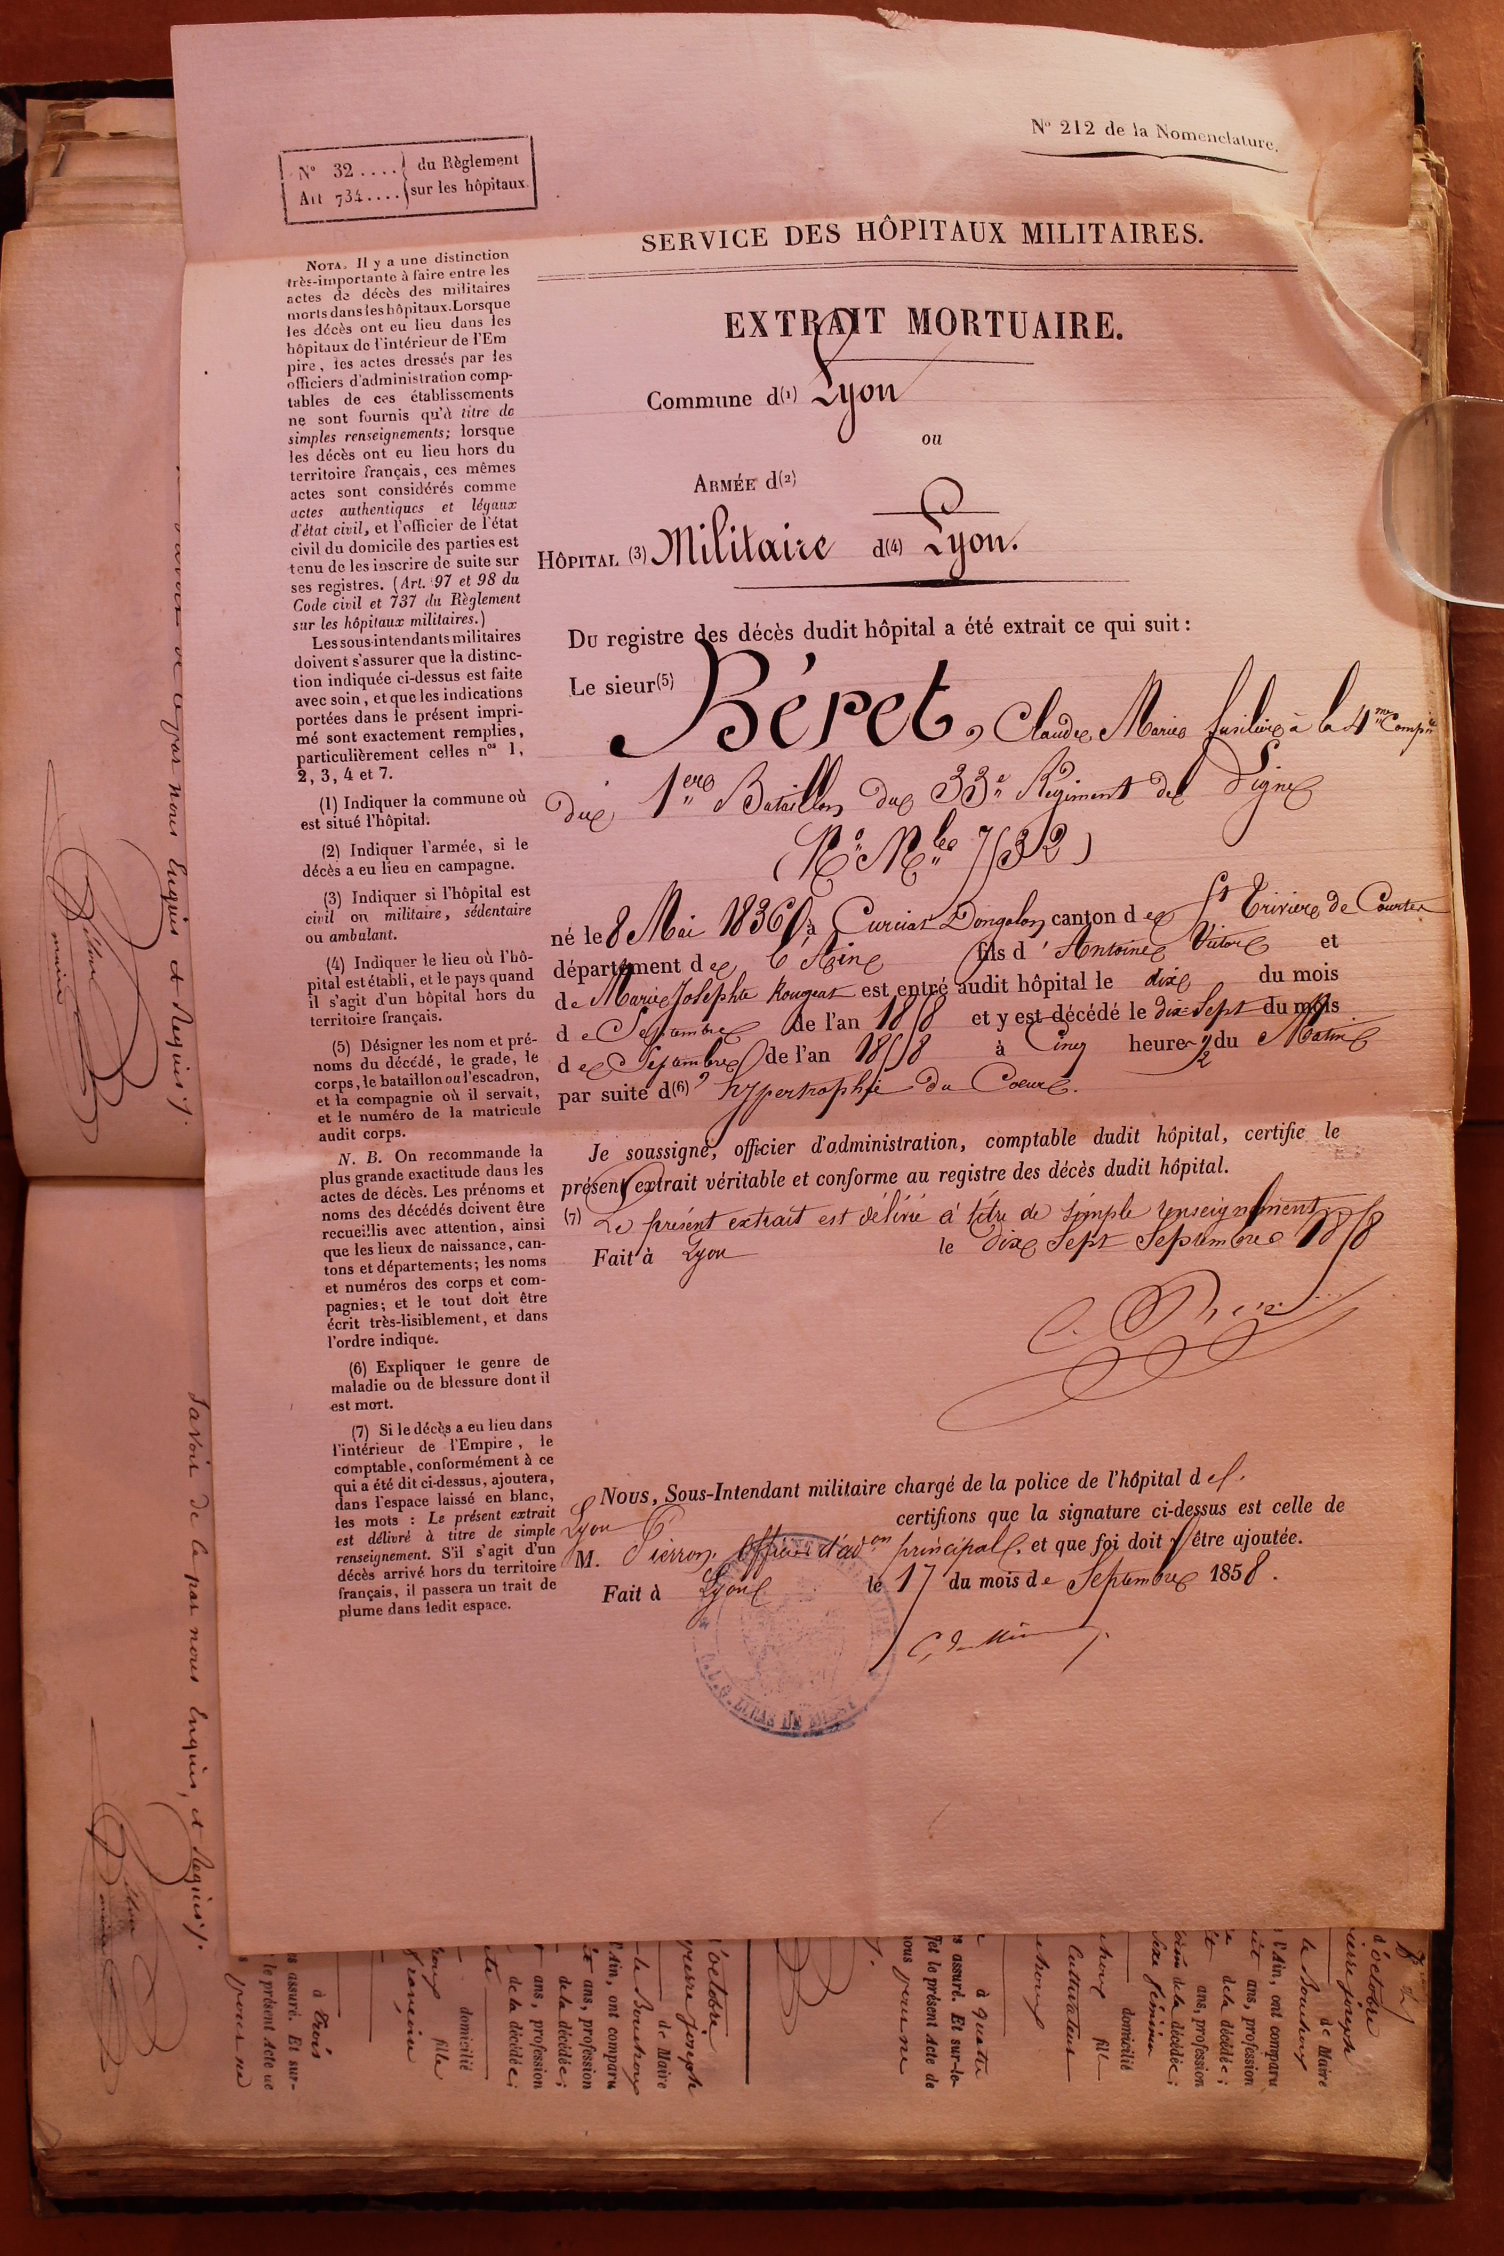 N° 212 de la Nomenclature.
N° 32 .... du Règlement
Art 734 .... sur les hôpitaux.
SERVICE DES HÔPITAUX MILITAIRES.
EXTRAIT MORTUAIRE.
Commune d(1) Lyon
ou
ARMÉE d(2)
HÔPITAL (3) Militaire d(4) Lyon.
Du registre des décès dudit hôpital a été extrait ce qui suit :
Le sieur(5) Béret, Claude Marie fusilier à la 4me Compie
du 1er Bataillon du 33e Régiment de Ligne
(No Mle 7532)
né le 8 Mai 1836 à Curciat Dongalon canton de St Trivier de Courtes
département de l'Ain fils d'Antoine Victor et
de Marie Josephte Rougeat est entré audit hôpital le dix du mois
de Septembre de l'an 1858 et y est décédé le dix-Sept du mois
de Septembre de l'an 1858 à Cinq heure ½ du Matin
par suite d(6) 'hypertrophie du Coeur.
Je soussigné, officier d'administration, comptable dudit hôpital, certifie le
présent extrait véritable et conforme au registre des décès dudit hôpital.
(7) Le présent extrait est délivré à titre de simple renseignement
Fait à Lyon le dix Sept Septembre 1858
Nous, Sous-Intendant militaire chargé de la police de l'hôpital de
Lyon certifions que la signature ci-dessus est celle de
M. Pierron, Officier d'adon principal, et que foi doit y être ajoutée.
Fait à Lyon le 17 du mois de Septembre 1858.
NOTA. Il y a une distinction
très-importante à faire entre les
actes de décès des militaires
morts dans les hôpitaux. Lorsque
les décès ont eu lieu dans les
hôpitaux de l'intérieur de l'Em
pire, les actes dressés par les
officiers d'administration comp-
tables de ces établissements
ne sont fournis qu'à titre de
simples renseignements; lorsque
les décès ont eu lieu hors du
territoire français, ces mêmes
actes sont considérés comme
actes authentiques et légaux
d'état civil, et l'officier de l'état
civil du domicile des parties est
tenu de les inscrire de suite sur
ses registres. (Art. 97 et 98 du
Code civil et 737 du Règlement
sur les hôpitaux militaires.)
Les sous-intendants militaires
doivent s'assurer que la distinc-
tion indiquée ci-dessus est faite
avec soin, et que les indications
portées dans le présent impri-
mé sont exactement remplies,
particulièrement celles nos 1,
2, 3, 4 et 7.
(1) Indiquer la commune où
est situé l'hôpital.
(2) Indiquer l'armée, si le
décès a eu lieu en campagne.
(3) Indiquer si l'hôpital est
civil ou militaire, sédentaire
ou ambulant.
(4) Indiquer le lieu où l'hô-
pital est établi, et le pays quand
il s'agit d'un hôpital hors du
territoire français.
(5) Désigner les nom et pré-
noms du décédé, le grade, le
corps, le bataillon ou l'escadron,
et la compagnie où il servait,
et le numéro de la matricule
audit corps.
N. B. On recommande la
plus grande exactitude dans les
actes de décès. Les prénoms et
noms des décédés doivent être
recueillis avec attention, ainsi
que les lieux de naissance, can-
tons et départements; les noms
et numéros des corps et com-
pagnies; et le tout doit être
écrit très-lisiblement, et dans
l'ordre indiqué.
(6) Expliquer le genre de
maladie ou de blessure dont il
est mort.
(7) Si le décès a eu lieu dans
l'intérieur de l'Empire, le
comptable, conformément à ce
qui a été dit ci-dessus, ajoutera,
dans l'espace laissé en blanc,
les mots : Le présent extrait
est délivré à titre de simple
renseignement. S'il s'agit d'un
décès arrivé hors du territoire
français, il passera un trait de
plume dans ledit espace.
par nous Enquis et Requis
Savoir de ce par nous Enquis, et Requis
d'octobre
pierre joseph
de Maire
l'Ain, ont comparu
ans, profession
de la décédée;
ans, profession
de la décédée;
domicilié
fil
cultivateur
à quatre
s assuré. Et sur-le-
fot le présent Acte de
l'octobre
pierre joseph
de Maire
l'Ain, ont comparu
ans, profession
de la décédée;
ans, profession
de la décédée;
domicilié
fille
françoise
à trois
s assuré. Et sur-
le présent Acte